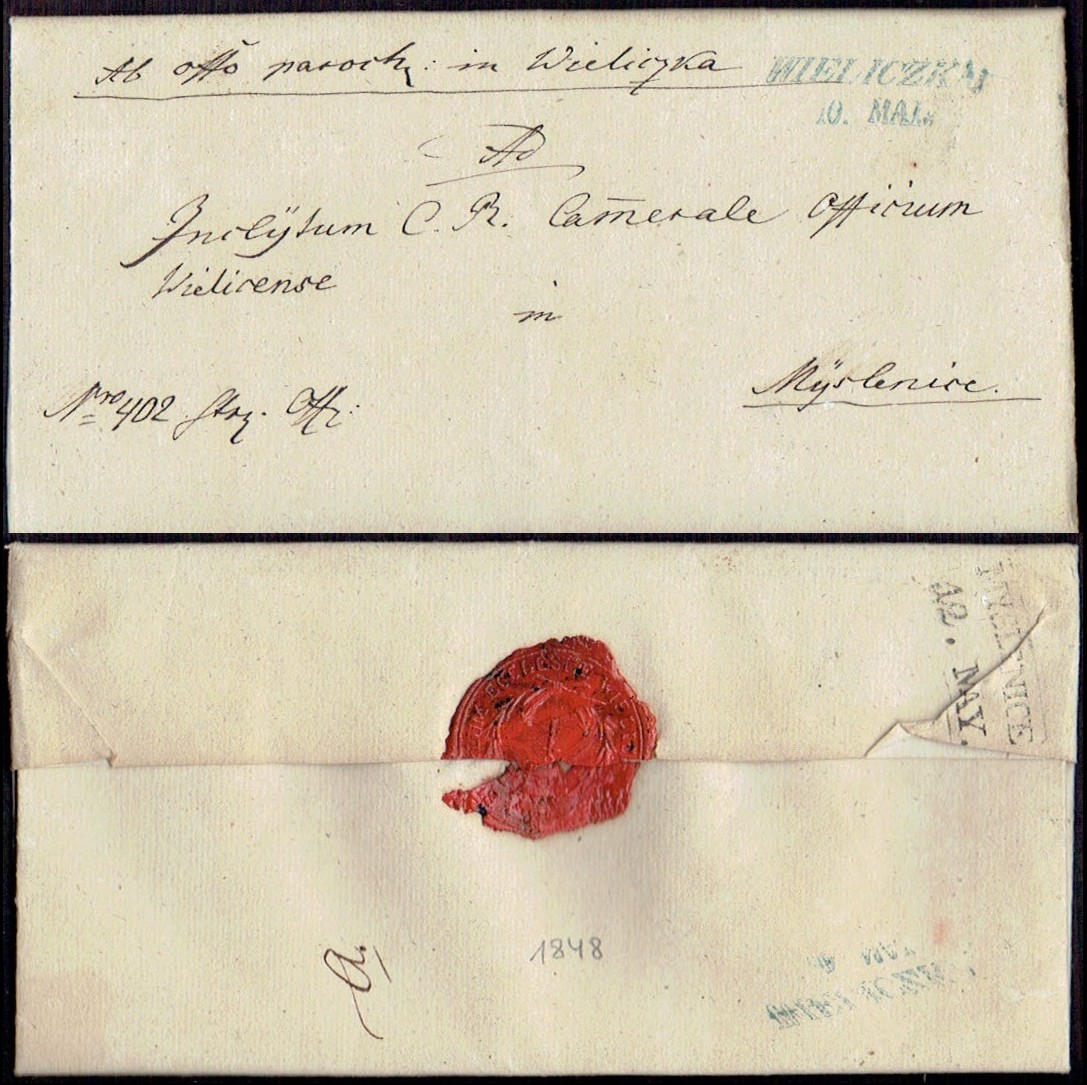 Ab offõ paroch: in Wieliczka
WIELICZKA
10. MAI.
Ad
Inclÿtum C. R. Camerale Officium
Wielicense
in
Mÿslenice.
Nro 402 Off:
12. MAY.
1848